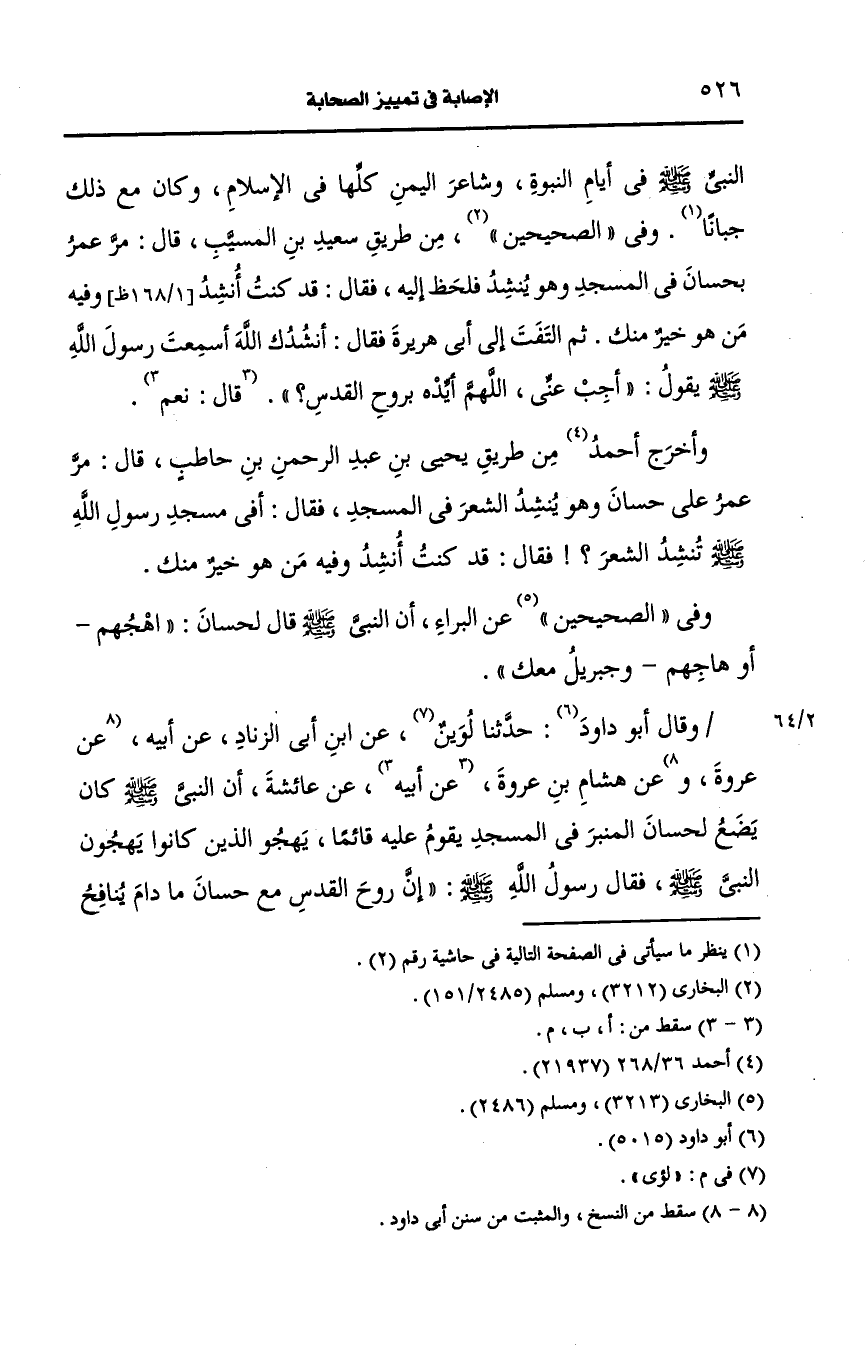 ٥٢٦
الإصابة فى تمييز الصحابة
النبىِّ ﷺ فى أيامِ النبوةِ ، وشاعرَ اليمنِ كلِّها فى الإسلامِ ، وكان مع ذلك
جبانًا(١) . وفى « الصحيحين »(٢) ، مِن طريقِ سعيدِ بنِ المسيَّبِ ، قال : مرَّ عمرُ
بحسانَ فى المسجدِ وهو يُنشِدُ فلحَظ إليه ، فقال : قد كنتُ أُنشِدُ [١٦٨/١ظ] وفيه
مَن هو خيرٌ منك . ثم التَفَتَ إلى أبى هريرةَ فقال : أنشُدُك اللَّهَ أسمِعتَ رسولَ اللَّهِ
ﷺ يقولُ : « أجِبْ عنِّى ، اللَّهمَّ أيِّدْه بروحِ القدسِ؟ » . (٣قال : نعم٣) .
وأخرَج أحمدُ(٤) مِن طريقِ يحيى بنِ عبدِ الرحمنِ بنِ حاطبٍ ، قال : مرَّ
عمرُ على حسانَ وهو يُنشِدُ الشعرَ فى المسجدِ ، فقال : أفى مسجدِ رسولِ اللَّهِ
ﷺ تُنشِدُ الشعرَ ؟ ! فقال : قد كنتُ أُنشِدُ وفيه مَن هو خيرٌ منك .
وفى « الصحيحين »(٥) عن البراءِ ، أن النبىَّ ﷺ قال لحسانَ : « اهْجُهم –
أو هاجِهم – وجبريلُ معك » .
٦٤/٢ / وقال أبو داودَ(٦) : حدَّثنا لُوَينٌ(٧) ، عن ابنِ أبى الزنادِ ، عن أبيه ، (٨عن
عروةَ ، و٨)عن هشامِ بنِ عروةَ ، (٣عن أبيه٣) ، عن عائشةَ ، أن النبىَّ ﷺ كان
يَضَعُ لحسانَ المنبرَ فى المسجدِ يقومُ عليه قائمًا ، يَهجُو الذين كانوا يَهجُون
النبىَّ ﷺ ، فقال رسولُ اللَّهِ ﷺ : « إنَّ روحَ القدسِ مع حسانَ ما دامَ يُنافِحُ
(١) ينظر ما سيأتى فى الصفحة التالية فى حاشية رقم (٢) .
(٢) البخارى (٣٢١٢) ، ومسلم (١٥١/٢٤٨٥) .
(٣ – ٣) سقط من : أ ، ب ، م .
(٤) أحمد ٢٦٨/٣٦ (٢١٩٣٧) .
(٥) البخارى (٣٢١٣) ، ومسلم (٢٤٨٦) .
(٦) أبو داود (٥٠١٥) .
(٧) فى م : « لؤى » .
(٨ – ٨) سقط من النسخ ، والمثبت من سنن أبى داود .